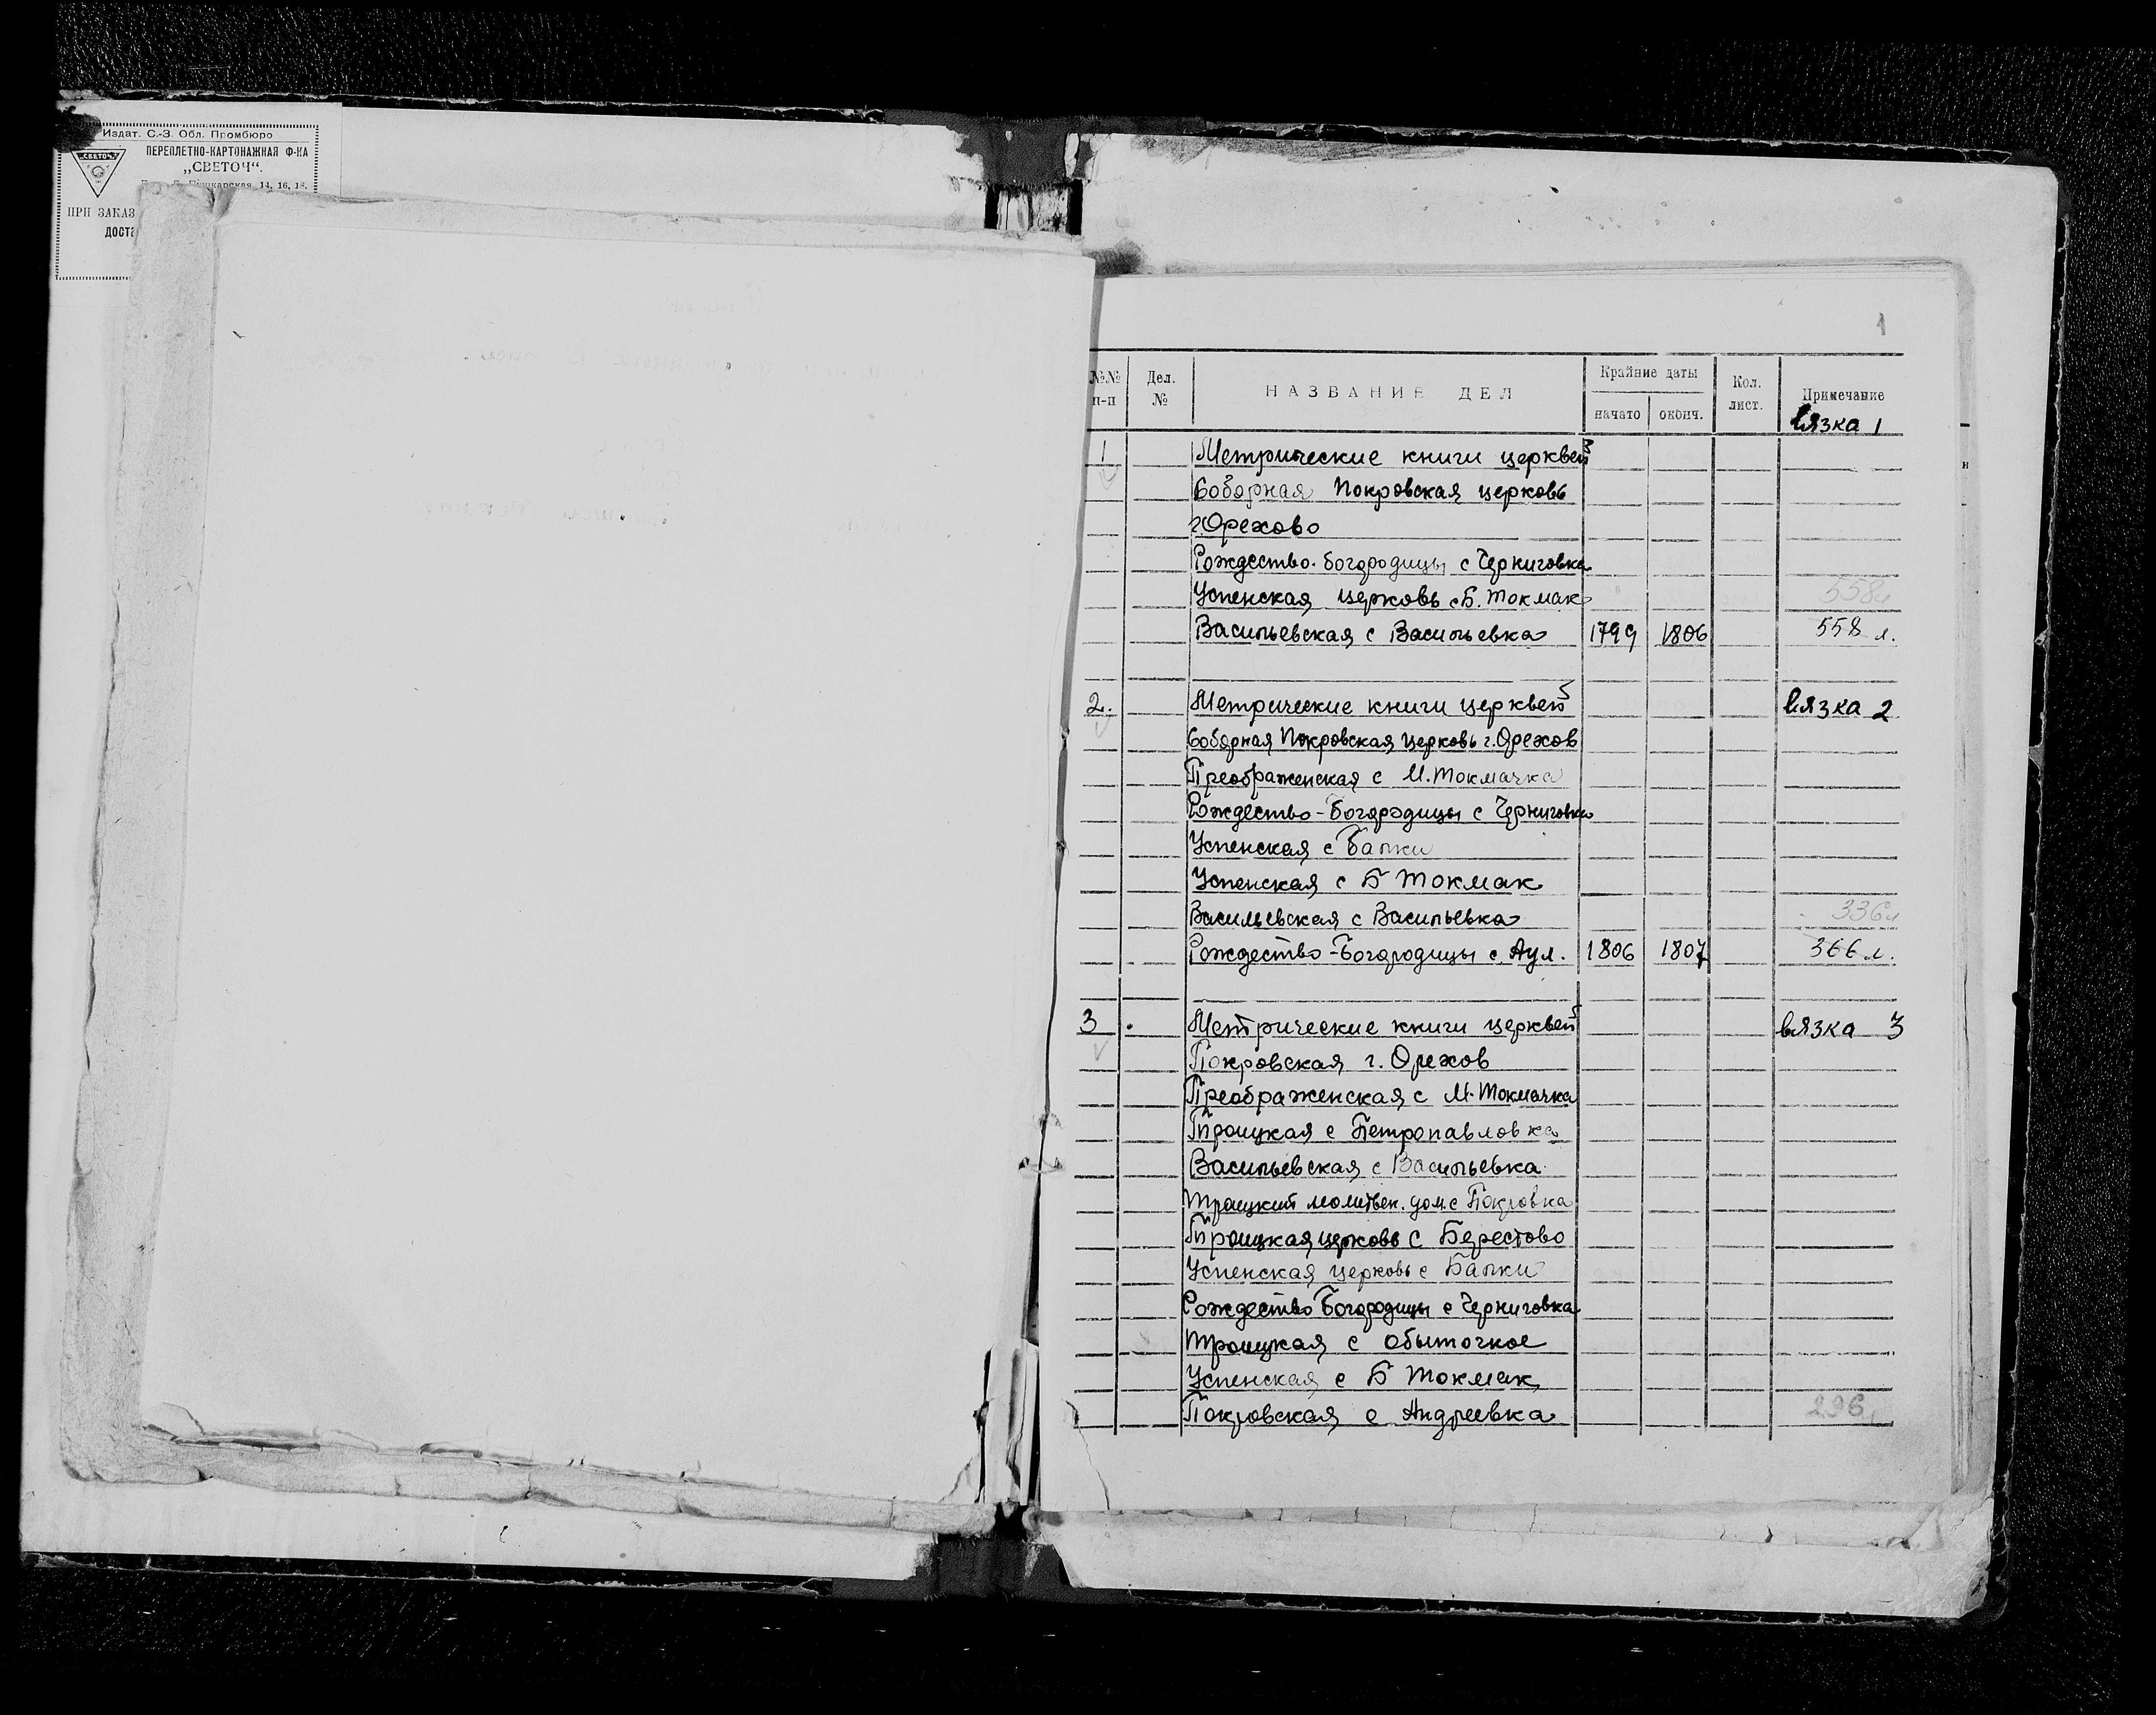 Издат. С.-З. Обл. Промбюро
ПЕРЕПЛЕТНО-КАРТОНАЖНАЯ Ф-КА
„СВЕТОЧ“.
СВЕТОЧ
14, 16, 18.
ПРИ ЗАКАЗ
ДОСТА
1
№№ п-п
Дел. №
НАЗВАНИЕ ДЕЛ
Крайние даты
начато
оконч.
Кол. лист.
Примечание
вязка 1
1 Метрические книги церквей 3
Соборная Покровская церковь
г.Орехово
Рождество-Богородицы с Черниговка
Успенская церковь с Б. Токмак 558л
Васильевская с Васильевка 1799 1806 558 л.
2. Метрические книги церквей 5 вязка 2
Соборная Покровская церковь г. Орехов
Преображенская с М. Токмачка
Рождество-Богородицы с Черниговка
Успенская с Балки
Успенская с Б Токмак
Васильевская с Васильевка 336л
Рождество-Богородицы с Аул. 1806 1807 366 л.
3 . Метрические книги церквей 5 вязка 3
Покровская г. Орехов
Преображенская с М. Токмачка
Троицкая с Петропавловка
Васильевская с Васильевка
Троицкий молитвен. дом с Покровка
Троицкая церковь с Берестово
Успенская церковь с Балки
Рождество Богородицы с Черниговка
Троицкая с Обыточное
Успенская с Б Токмак
Покровская с Андреевка 296